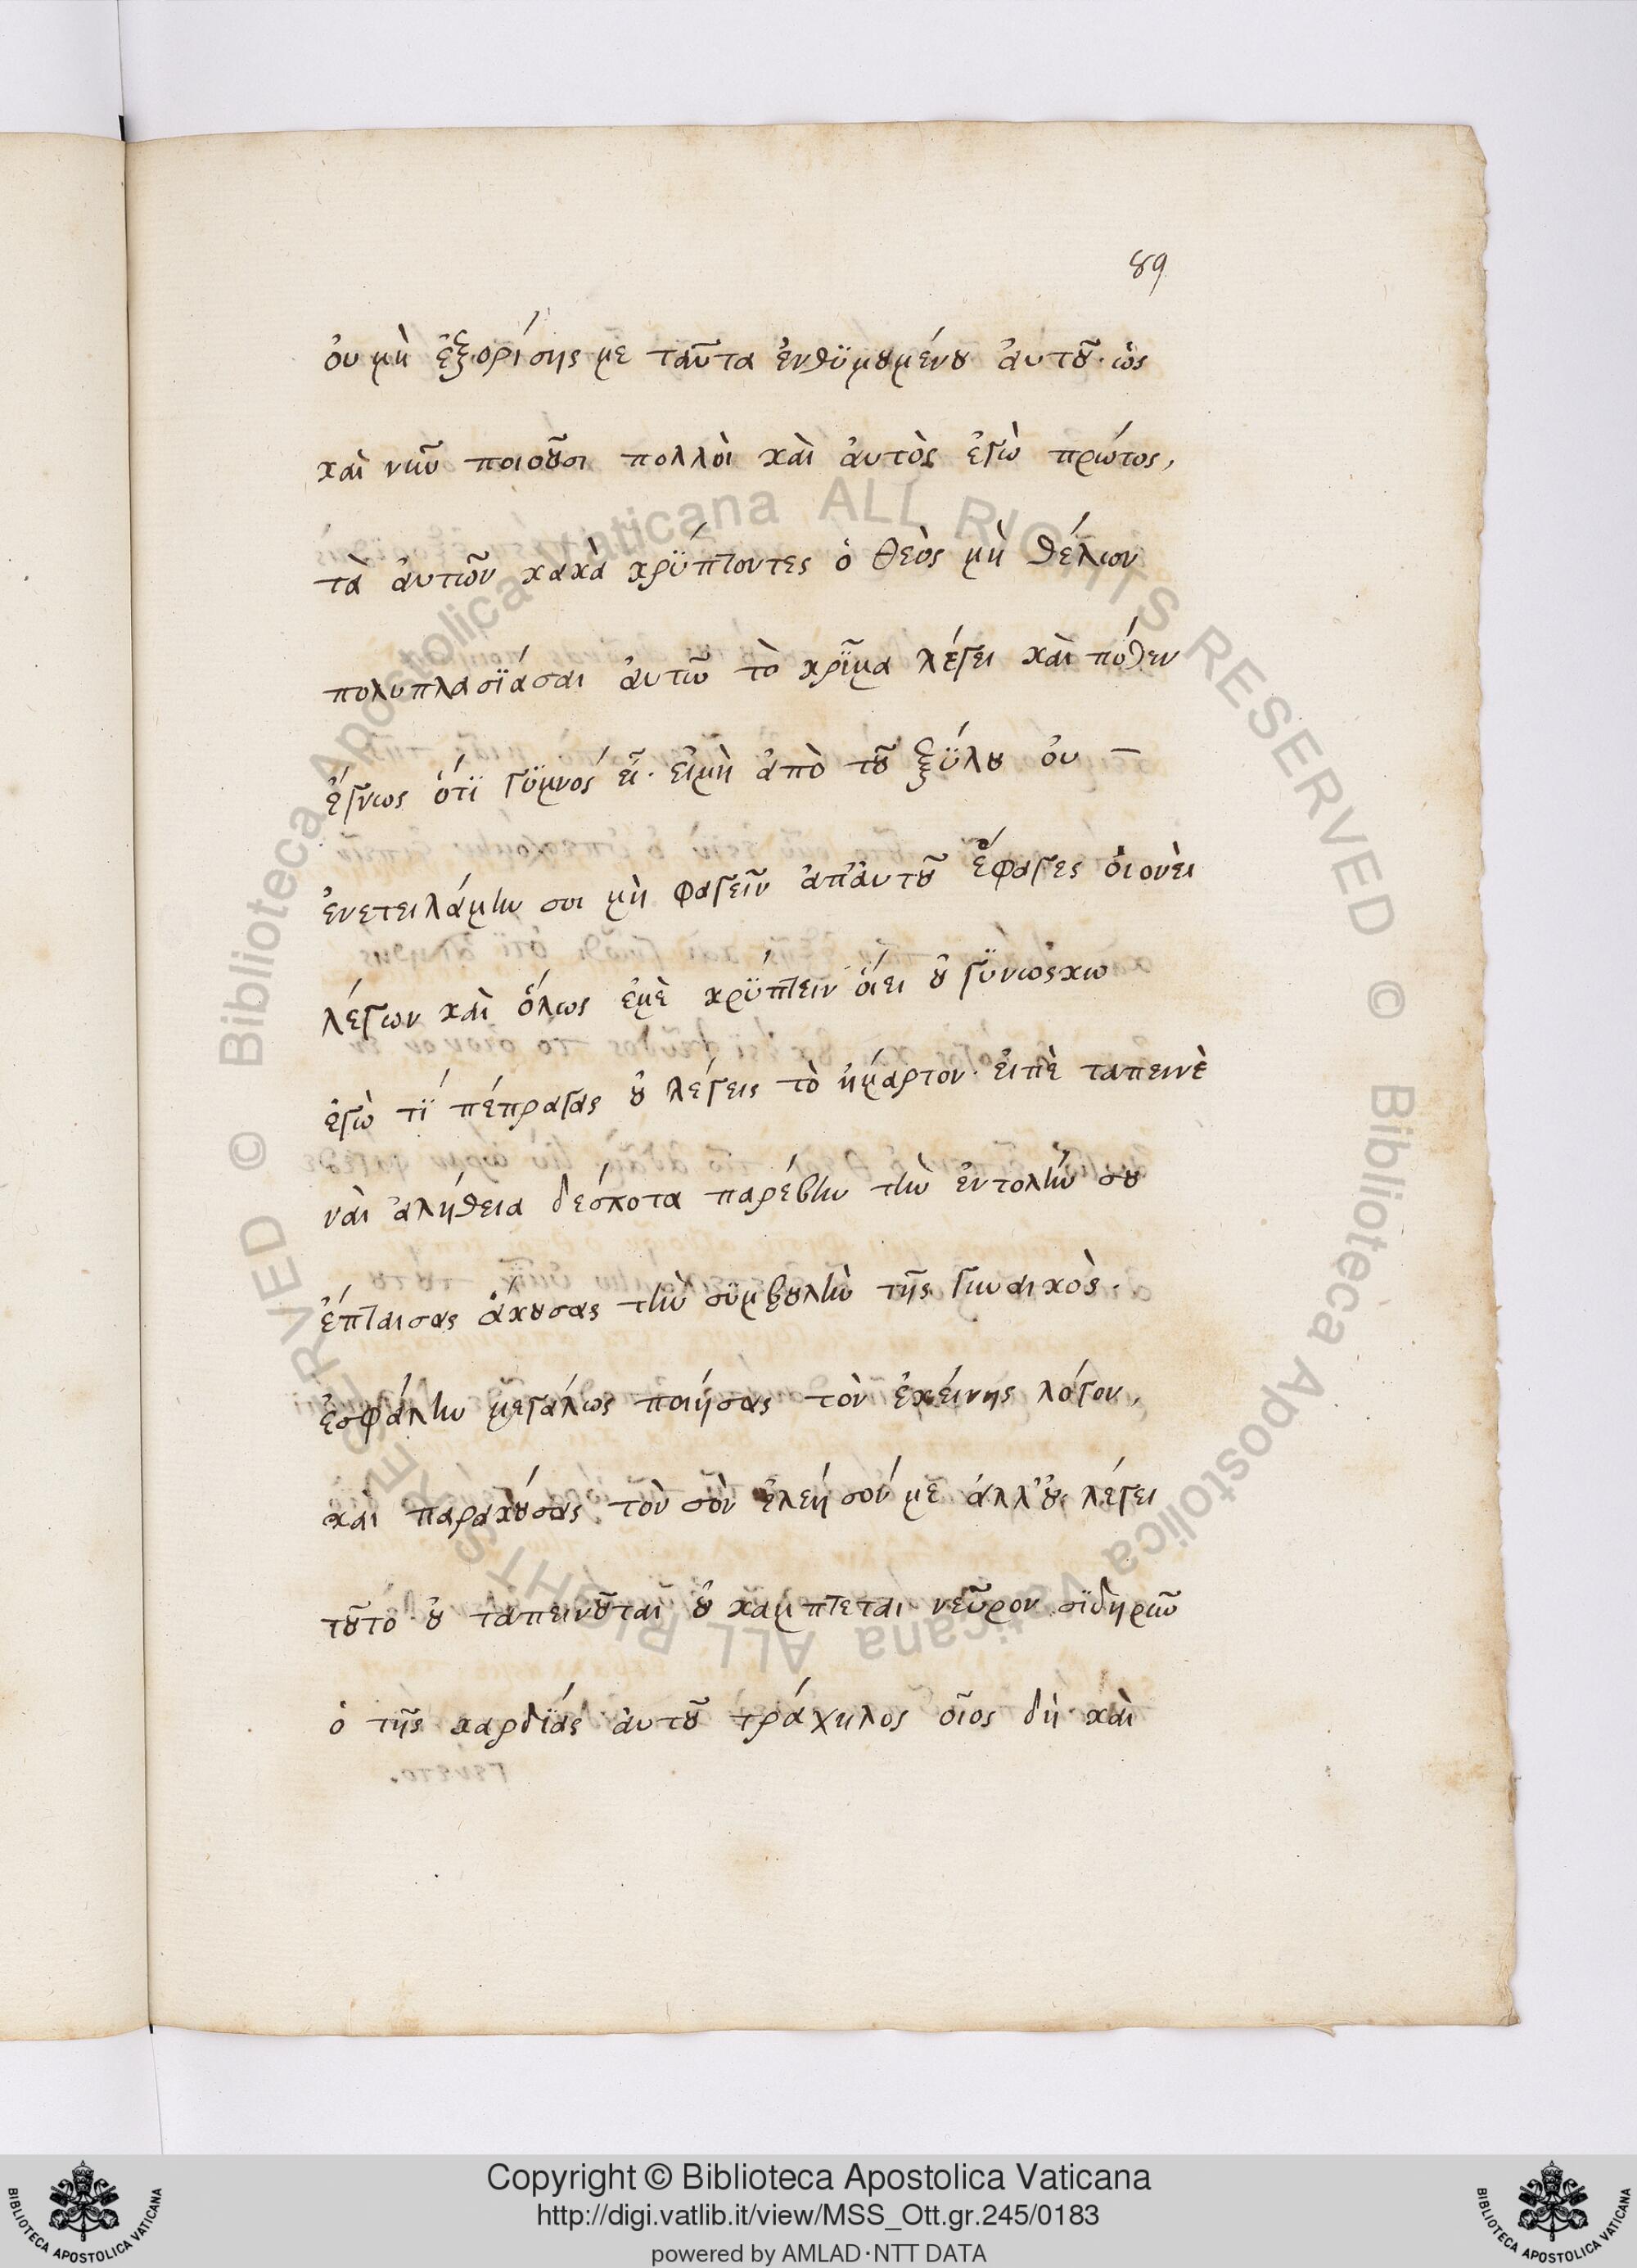 89
ὀυ μὴ ἐξορίσης με ταῦτα ἐνθϋμουμένου ἀυτοῦ· ὡς
καὶ νῦν ποιοῦσι πολλοὶ καὶ ἀυτὸς ἐγὼ πρώτος,
τὰ ἀυτῶν κακὰ κρΰπτοντες ὁ θεὸς μὴ θέλων
πολυπλασϊάσαι ἀυτῶ τὸ κρῖμα λέγει καὶ πόθεν
ἔγνως ὅτϊ γϋμνός εἶ· εἰμὴ ἀπὸ τοῦ ξΰλου ὀυ –
ἐνετειλάμην σοι μὴ φαγεῖν ἀπ'ἀυτοῦ ἔφαγες ὁιονὲι
λέγων καὶ ὅλως ἐμὲ κρΰπτειν ὄιει οὐ γϋνώσκω
ἐγὼ τΐ πέπραγας οὐ λέγεις τὸ ἡμάρτον· ἐιπὲ ταπεινὲ
νὰι ἀλήθεια δέσποτα παρέβην τὴν ἐντολήν σου
ἔπταισας ἀκούσας τὴν σϋμβουλὴν τῆς γυναικὸς·
ἐσφάλην μεγάλως ποιήσας τὸν ἐκείνης λόγον,
καὶ παρακούσας τὸν σὸν ἐλεήσόν με ἀλλ'οὐ λέγει
τοῦτο· οὐ ταπεινοῦται οὐ κάμπτεται νεῦρον σϊδηρῶν
ὁ τῆς καρδϊάς ἀυτοῦ τράχηλος οἷος δὴ καὶ
Copyright © Biblioteca Apostolica Vaticana
http://digi.vatlib.it/view/MSS_Ott.gr.245/0183
powered by AMLAD·NTT DATA
BIBLIOTECA APOSTOLICA VATICANA
BIBLIOTECA APOSTOLICA VATICANA
© Biblioteca Apostolica Vaticana ALL RIGHTS RESERVED © Biblioteca Apostolica Vaticana ALL RIGHTS RESERVED